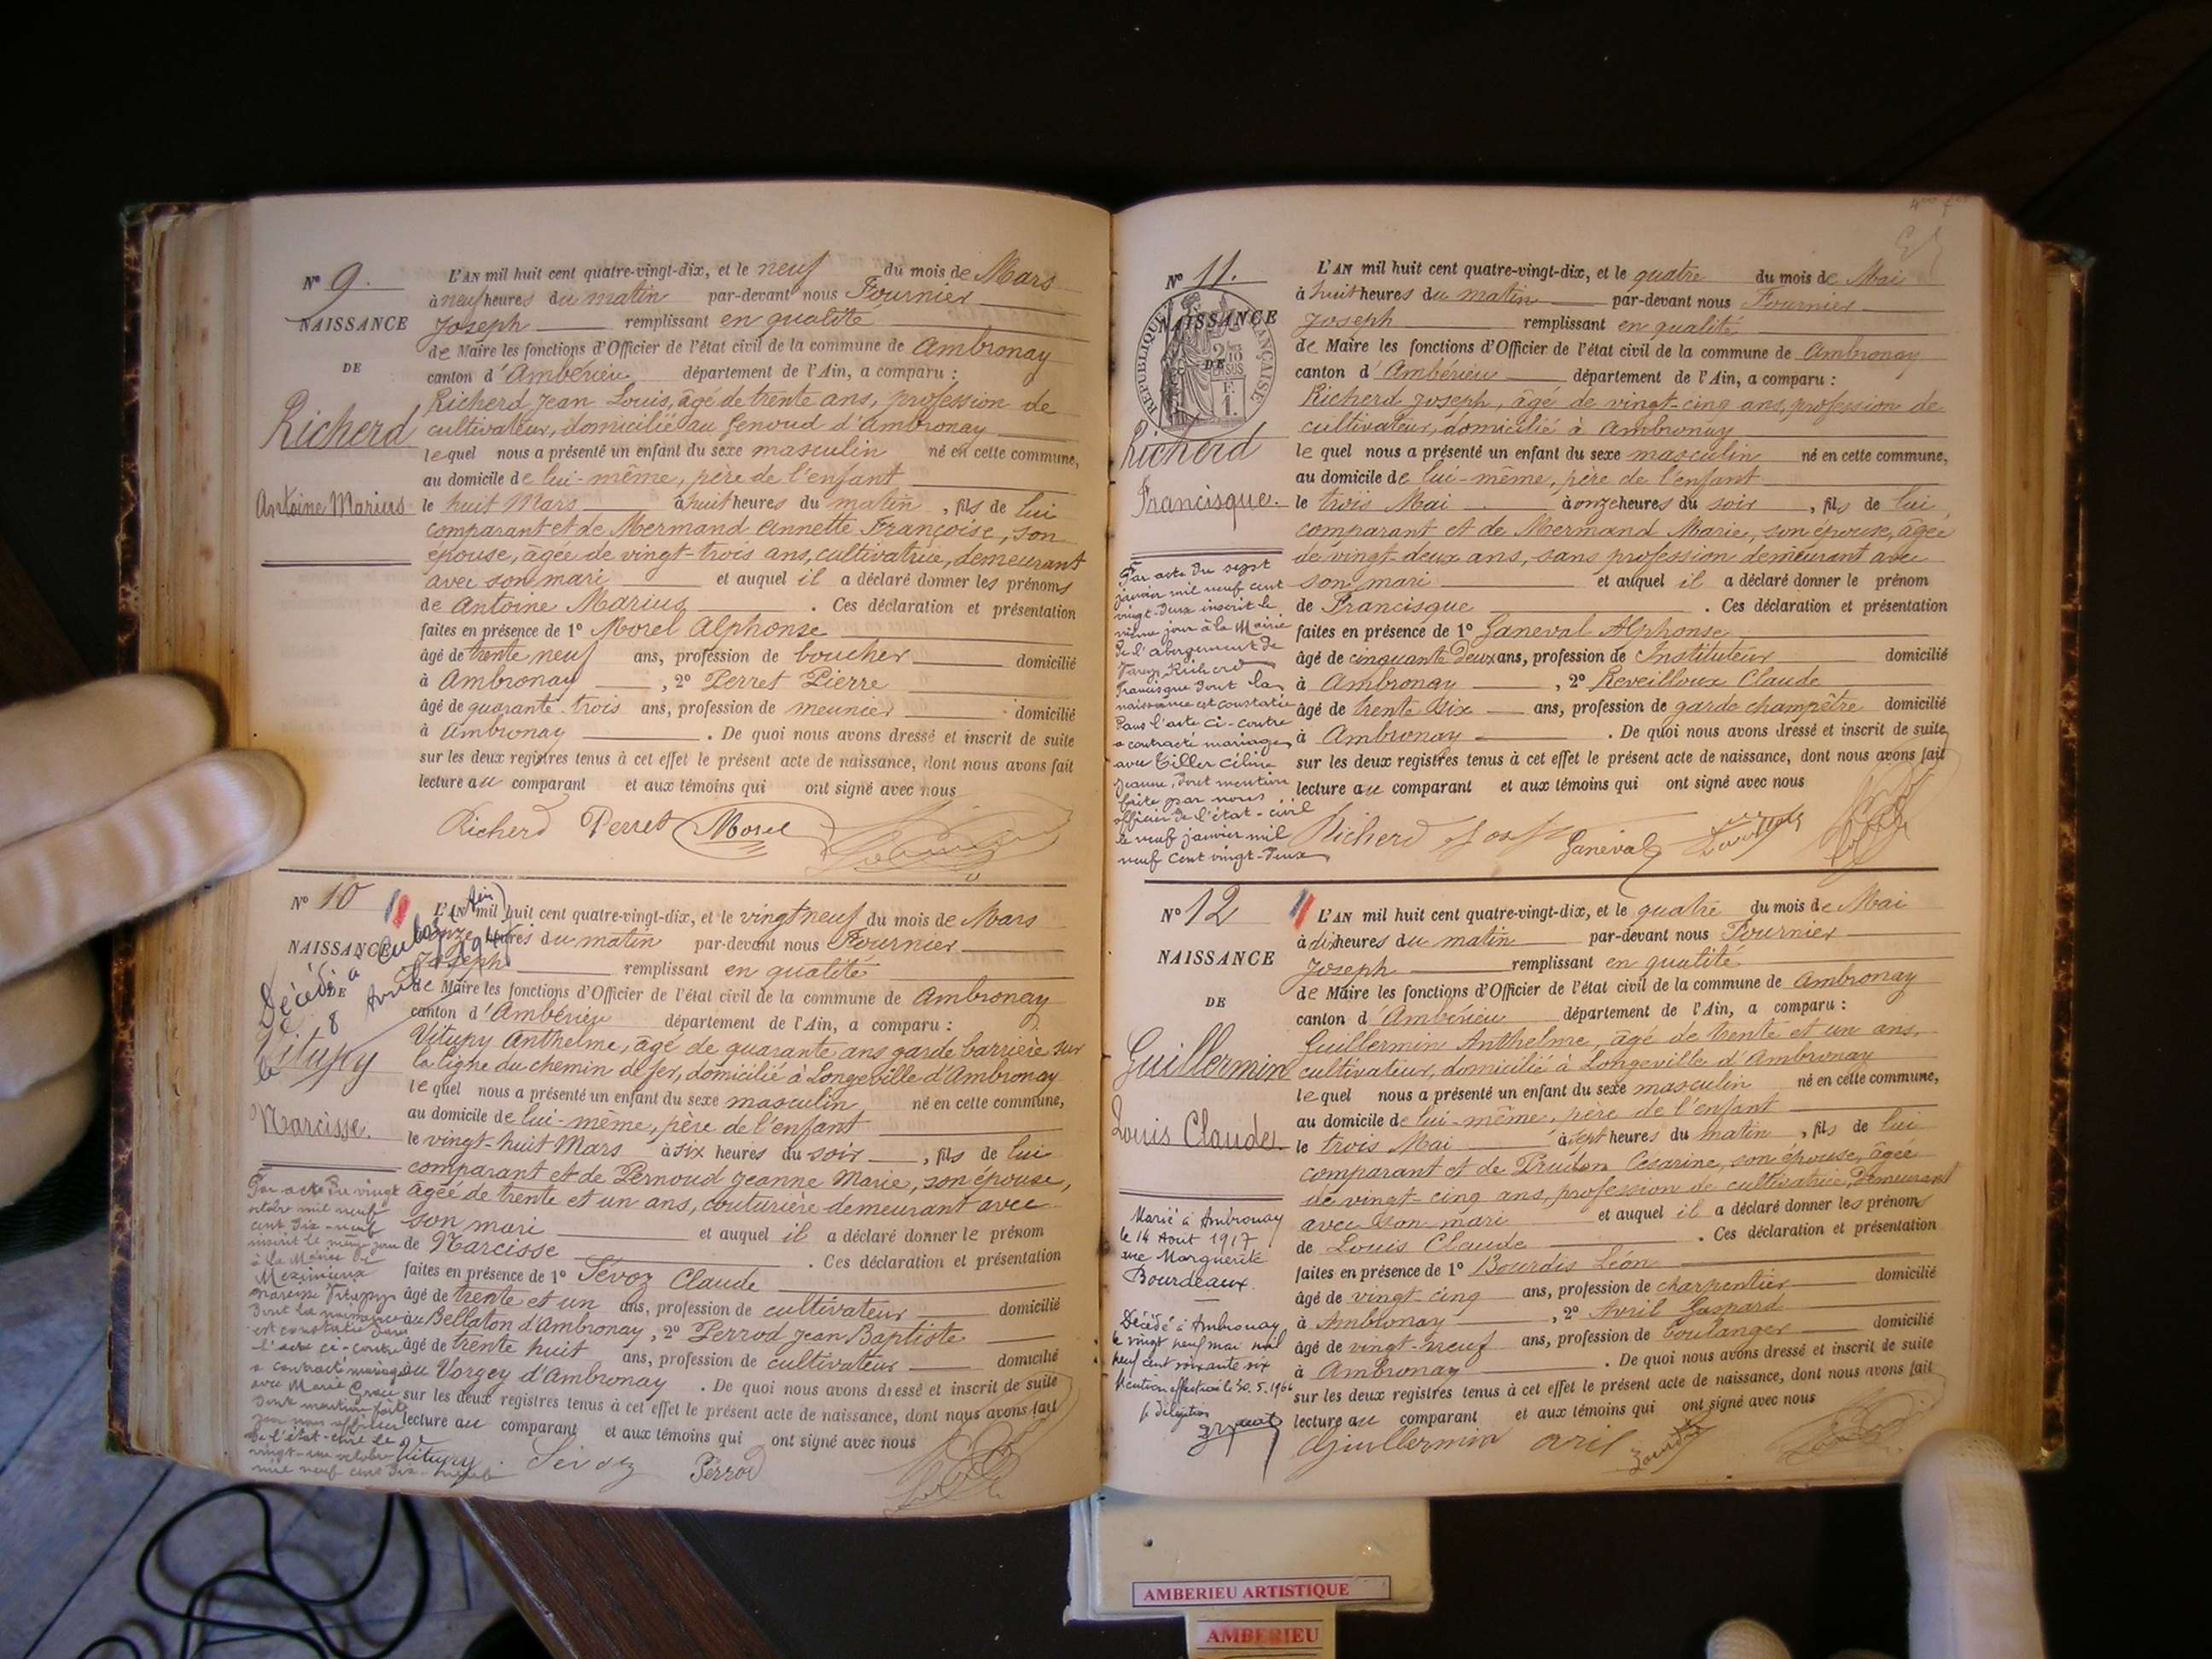 N° 9.
NAISSANCE
DE
Richerd
Antoine Marius
L'AN mil huit cent quatre-vingt-dix, et le neuf du mois de Mars
à neuf heures du matin par-devant nous Fournier
Joseph remplissant en qualité
de Maire les fonctions d'Officier de l'état civil de la commune de Ambronay
canton d'Ambérieu département de l'Ain, a comparu :
Richerd Jean Louis, âgé de trente ans, profession de
cultivateur, domicilié au Genoud d'Ambronay
lequel nous a présenté un enfant du sexe masculin né en cette commune,
au domicile de lui-même, père de l'enfant
le huit Mars à huit heures du matin, fils de lui
comparant et de Mermand Annette Françoise, son
épouse, âgée de vingt-trois ans, cultivatrice, demeurant
avec son mari et auquel il a déclaré donner les prénoms
de Antoine Marius. Ces déclaration et présentation
faites en présence de 1° Morel Alphonse
âgé de trente neuf ans, profession de boucher domicilié
à Ambronay, 2° Perret Pierre
âgé de quarante-trois ans, profession de meunier domicilié
à Ambronay. De quoi nous avons dressé et inscrit de suite
sur les deux registres tenus à cet effet le présent acte de naissance, dont nous avons fait
lecture au comparant et aux témoins qui ont signé avec nous
Richerd Perret Morel
N° 10
NAISSANCE
DE
Vitupy
Narcisse.
Décédé à
le 8
Par acte du vingt
octobre mil neuf
cent dix-neuf
inscrit le même jour
à la Mairie de
Meximieux
Narcisse Vitupy
dont la naissance
est constatée dans
l'acte ci-contre
a contracté mariage
avec Marie
dont mention faite
par nous officier
de l'état-civil le
vingt-un octobre
mil neuf cent dix-neuf
L'AN mil huit cent quatre-vingt-dix, et le vingt neuf du mois de Mars
à onze heures du matin par-devant nous Fournier
Joseph remplissant en qualité
de Maire les fonctions d'Officier de l'état civil de la commune de Ambronay
canton d'Ambérieu département de l'Ain, a comparu :
Vitupy Anthelme, âgé de quarante ans garde barrière sur
la ligne du chemin de fer, domicilié à Longeville d'Ambronay
lequel nous a présenté un enfant du sexe masculin né en cette commune,
au domicile de lui-même, père de l'enfant
le vingt-huit Mars à six heures du soir, fils de lui
comparant et de Pernoud Jeanne Marie, son épouse,
âgée de trente et un ans, couturière demeurant avec
son mari et auquel il a déclaré donner le prénom
de Narcisse. Ces déclaration et présentation
faites en présence de 1° Sévoz Claude
âgé de trente et un ans, profession de cultivateur domicilié
au Bellaton d'Ambronay, 2° Perrod Jean Baptiste
âgé de trente huit ans, profession de cultivateur domicilié
au Vorgey d'Ambronay. De quoi nous avons dressé et inscrit de suite
sur les deux registres tenus à cet effet le présent acte de naissance, dont nous avons fait
lecture au comparant et aux témoins qui ont signé avec nous
Vitupy Sévoz Perrod
N° 11.
NAISSANCE
DE
RÉPUBLIQUE FRANÇAISE
Richerd
Francisque.
Par acte du sept
janvier mil neuf cent
vingt-deux inscrit le
même jour à la Mairie
de l'abergement de
Varey, Richerd
Francisque dont la
naissance est constatée
dans l'acte ci-contre
a contracté mariage
avec Tiller Céline
Jeanne, dont mention
faite par nous
officier de l'état-civil
le neuf janvier mil
neuf cent vingt-deux
L'AN mil huit cent quatre-vingt-dix, et le quatre du mois de Mai
à huit heures du matin par-devant nous Fournier
Joseph remplissant en qualité
de Maire les fonctions d'Officier de l'état civil de la commune de Ambronay
canton d'Ambérieu département de l'Ain, a comparu :
Richerd Joseph, âgé de vingt-cinq ans, profession de
cultivateur, domicilié à Ambronay
lequel nous a présenté un enfant du sexe masculin né en cette commune,
au domicile de lui-même, père de l'enfant
le trois Mai à onze heures du soir, fils de lui
comparant et de Mermand Marie, son épouse, âgée
de vingt-deux ans, sans profession demeurant avec
son mari et auquel il a déclaré donner le prénom
de Francisque. Ces déclaration et présentation
faites en présence de 1° Ganeval Alphonse
âgé de cinquante deux ans, profession de Instituteur domicilié
à Ambronay, 2° Reveilloux Claude
âgé de trente six ans, profession de garde champêtre domicilié
à Ambronay. De quoi nous avons dressé et inscrit de suite
sur les deux registres tenus à cet effet le présent acte de naissance, dont nous avons fait
lecture au comparant et aux témoins qui ont signé avec nous
Richerd Josph Ganeval
N° 12
NAISSANCE
DE
Guillermin
Louis Claude
Marié à Ambronay
le 14 Aout 1917
Marguerite
Bourdeaux.
Décédé à Ambronay
le vingt neuf mai mil
neuf cent soixante six
Mention effectuée le 30.5.1966
L'AN mil huit cent quatre-vingt-dix, et le quatre du mois de Mai
à dix heures du matin par-devant nous Fournier
Joseph remplissant en qualité
de Maire les fonctions d'Officier de l'état civil de la commune de Ambronay
canton d'Ambérieu département de l'Ain, a comparu :
Guillermin Anthelme, âgé de trente et un ans,
cultivateur, domicilié à Longeville d'Ambronay
lequel nous a présenté un enfant du sexe masculin né en cette commune,
au domicile de lui-même, père de l'enfant
le trois Mai à sept heures du matin, fils de lui
comparant et de Prudon Césarine, son épouse, âgée
de vingt-cinq ans, profession de cultivatrice, demeurant
avec son mari et auquel il a déclaré donner les prénoms
de Louis Claude. Ces déclaration et présentation
faites en présence de 1° Bourdis Léon
âgé de vingt-cinq ans, profession de charpentier domicilié
à Ambronay, 2° Avril Gaspard
âgé de vingt-neuf ans, profession de boulanger domicilié
à Ambronay. De quoi nous avons dressé et inscrit de suite
sur les deux registres tenus à cet effet le présent acte de naissance, dont nous avons fait
lecture au comparant et aux témoins qui ont signé avec nous
Guillermin avril
AMBERIEU ARTISTIQUE
AMBERIEU